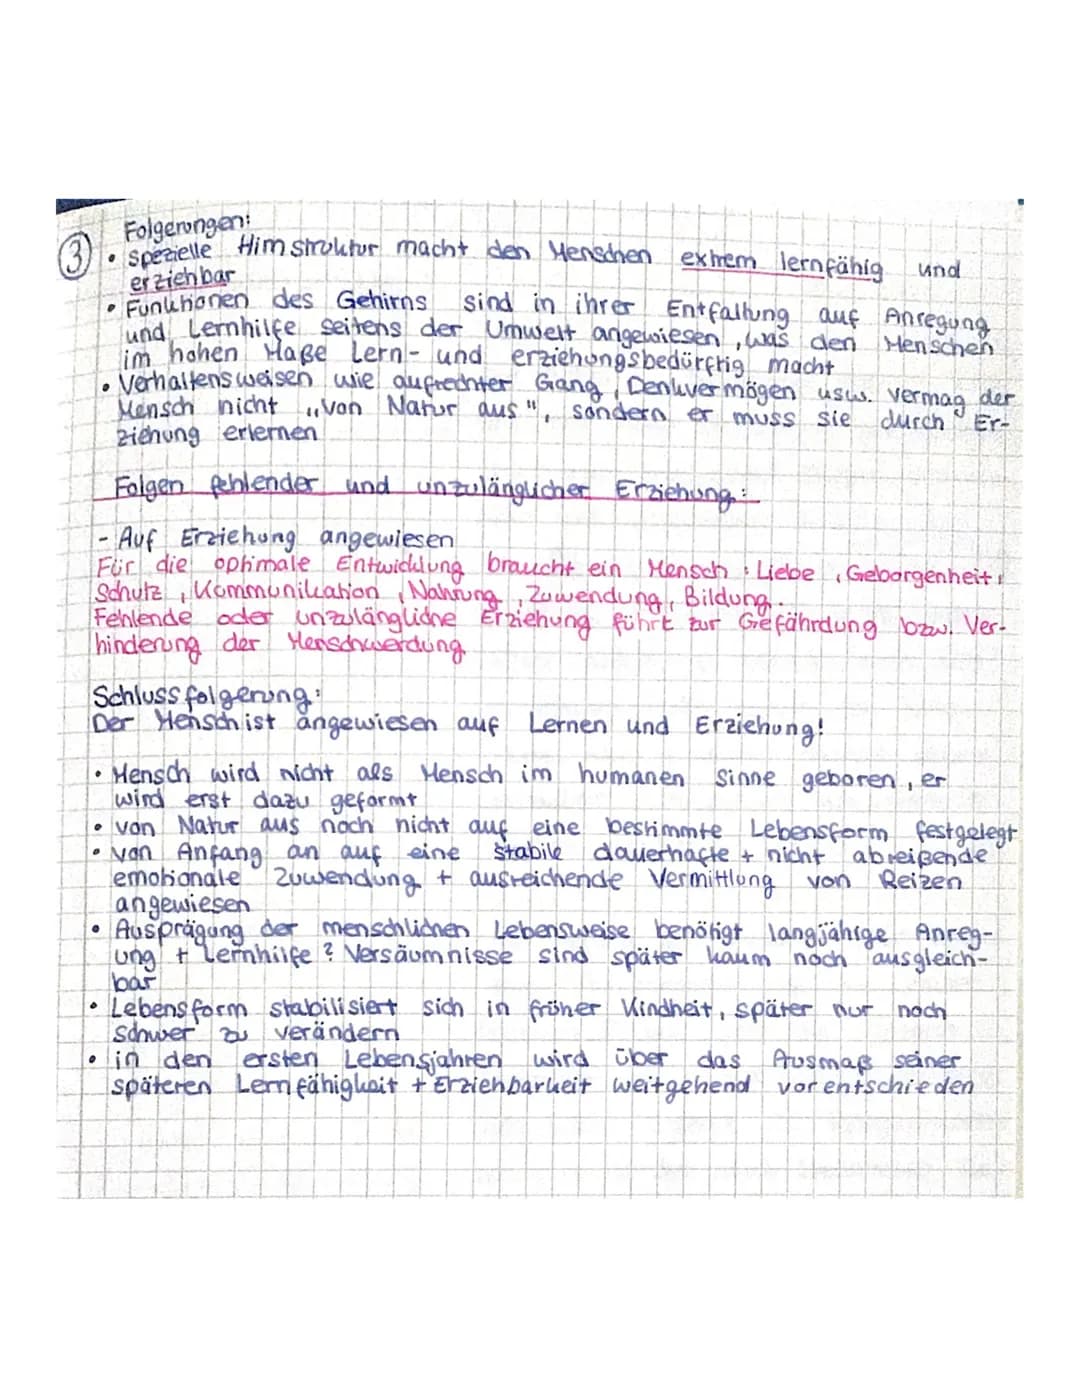 Folgerungen:
③ • spezielle Hirnstruktur macht den Menschen extrem lernfähig und
erziehbar
• Funktionen des Gehirns sind in ihrer Entfaltung auf Anregung
und Lernhilfe seitens der Umwelt angewiesen, was den Menschen
im hohen Maße Lern- und erziehungsbedürftig macht
• Verhaltensweisen wie aufrechter Gang, Denkvermögen usw. vermag der
Mensch nicht „von Natur aus", sondern er muss sie durch Er-
ziehung erlernen
Folgen fehlender und unzulänglicher Erziehung:
- Auf Erziehung angewiesen
Für die optimale Entwicklung braucht ein Mensch: Liebe, Geborgenheit,
Schutz, Kommunikation, Nahrung, Zuwendung, Bildung.
Fehlende oder unzulängliche Erziehung führt zur Gefährdung bzw. Ver-
hinderung der Menschwerdung
Schlussfolgerung:
Der Mensch ist angewiesen auf Lernen und Erziehung!
• Mensch wird nicht als Mensch im humanen Sinne geboren, er
wird erst dazu geformt
• von Natur aus noch nicht auf eine bestimmte Lebensform festgelegt
• von Anfang an auf eine stabile dauerhafte + nicht abreißende
emotionale Zuwendung + ausreichende Vermittlung von Reizen
angewiesen
• Ausprägung der menschlichen Lebensweise benötigt langjährige Anreg-
ung + Lernhilfe ? Versäumnisse sind später kaum noch ausgleich-
bar
• Lebensform stabilisiert sich in früher Kindheit, später nur noch
schwer zu verändern
• in den ersten Lebensjahren wird über das Ausmaß seiner
späteren Lernfähigkeit + Erziehbarkeit weitgehend vorentschieden